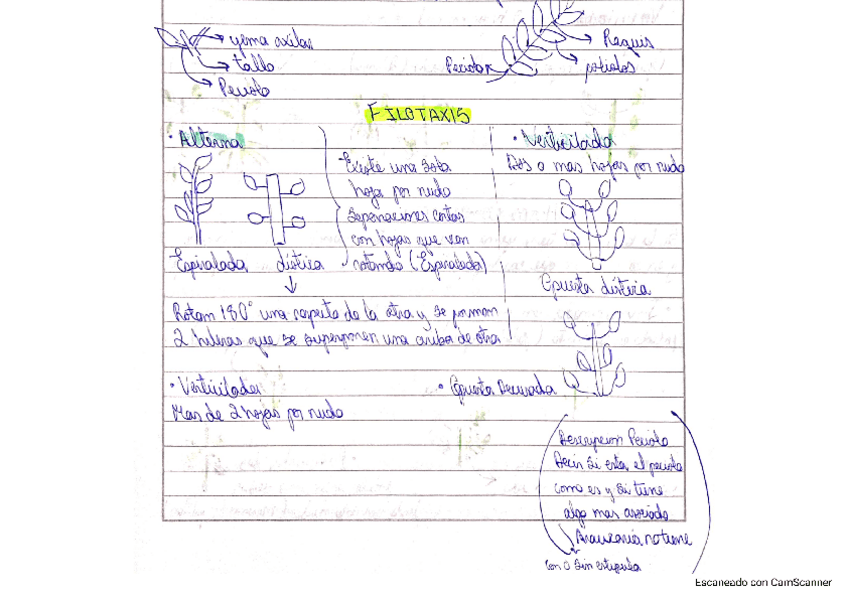 yema axilar
tallo
Peciolo
Raquis
peciolos
FILOTAXIS
· Alterna
Existe una sola
hoja por nudo
separaciones cortas
con hojas que van
rotando (Espiralada)
Espiralada distica
Rotan 180° una respeto de la otra y se forman
2 hileras que se superponen una arriba de otra
· Verticilada
Dos o mas hojas por nudo
Opuesta distica
· Verticilada
Mas de 2 hojas por nudo
· Opuesta Decusada
Descripcion Peciolo
Decir si esta el peciolo
como es y si tiene
algo mas asociado
Araucaria no tiene
con o sin estipula
Escaneado con CamScanner